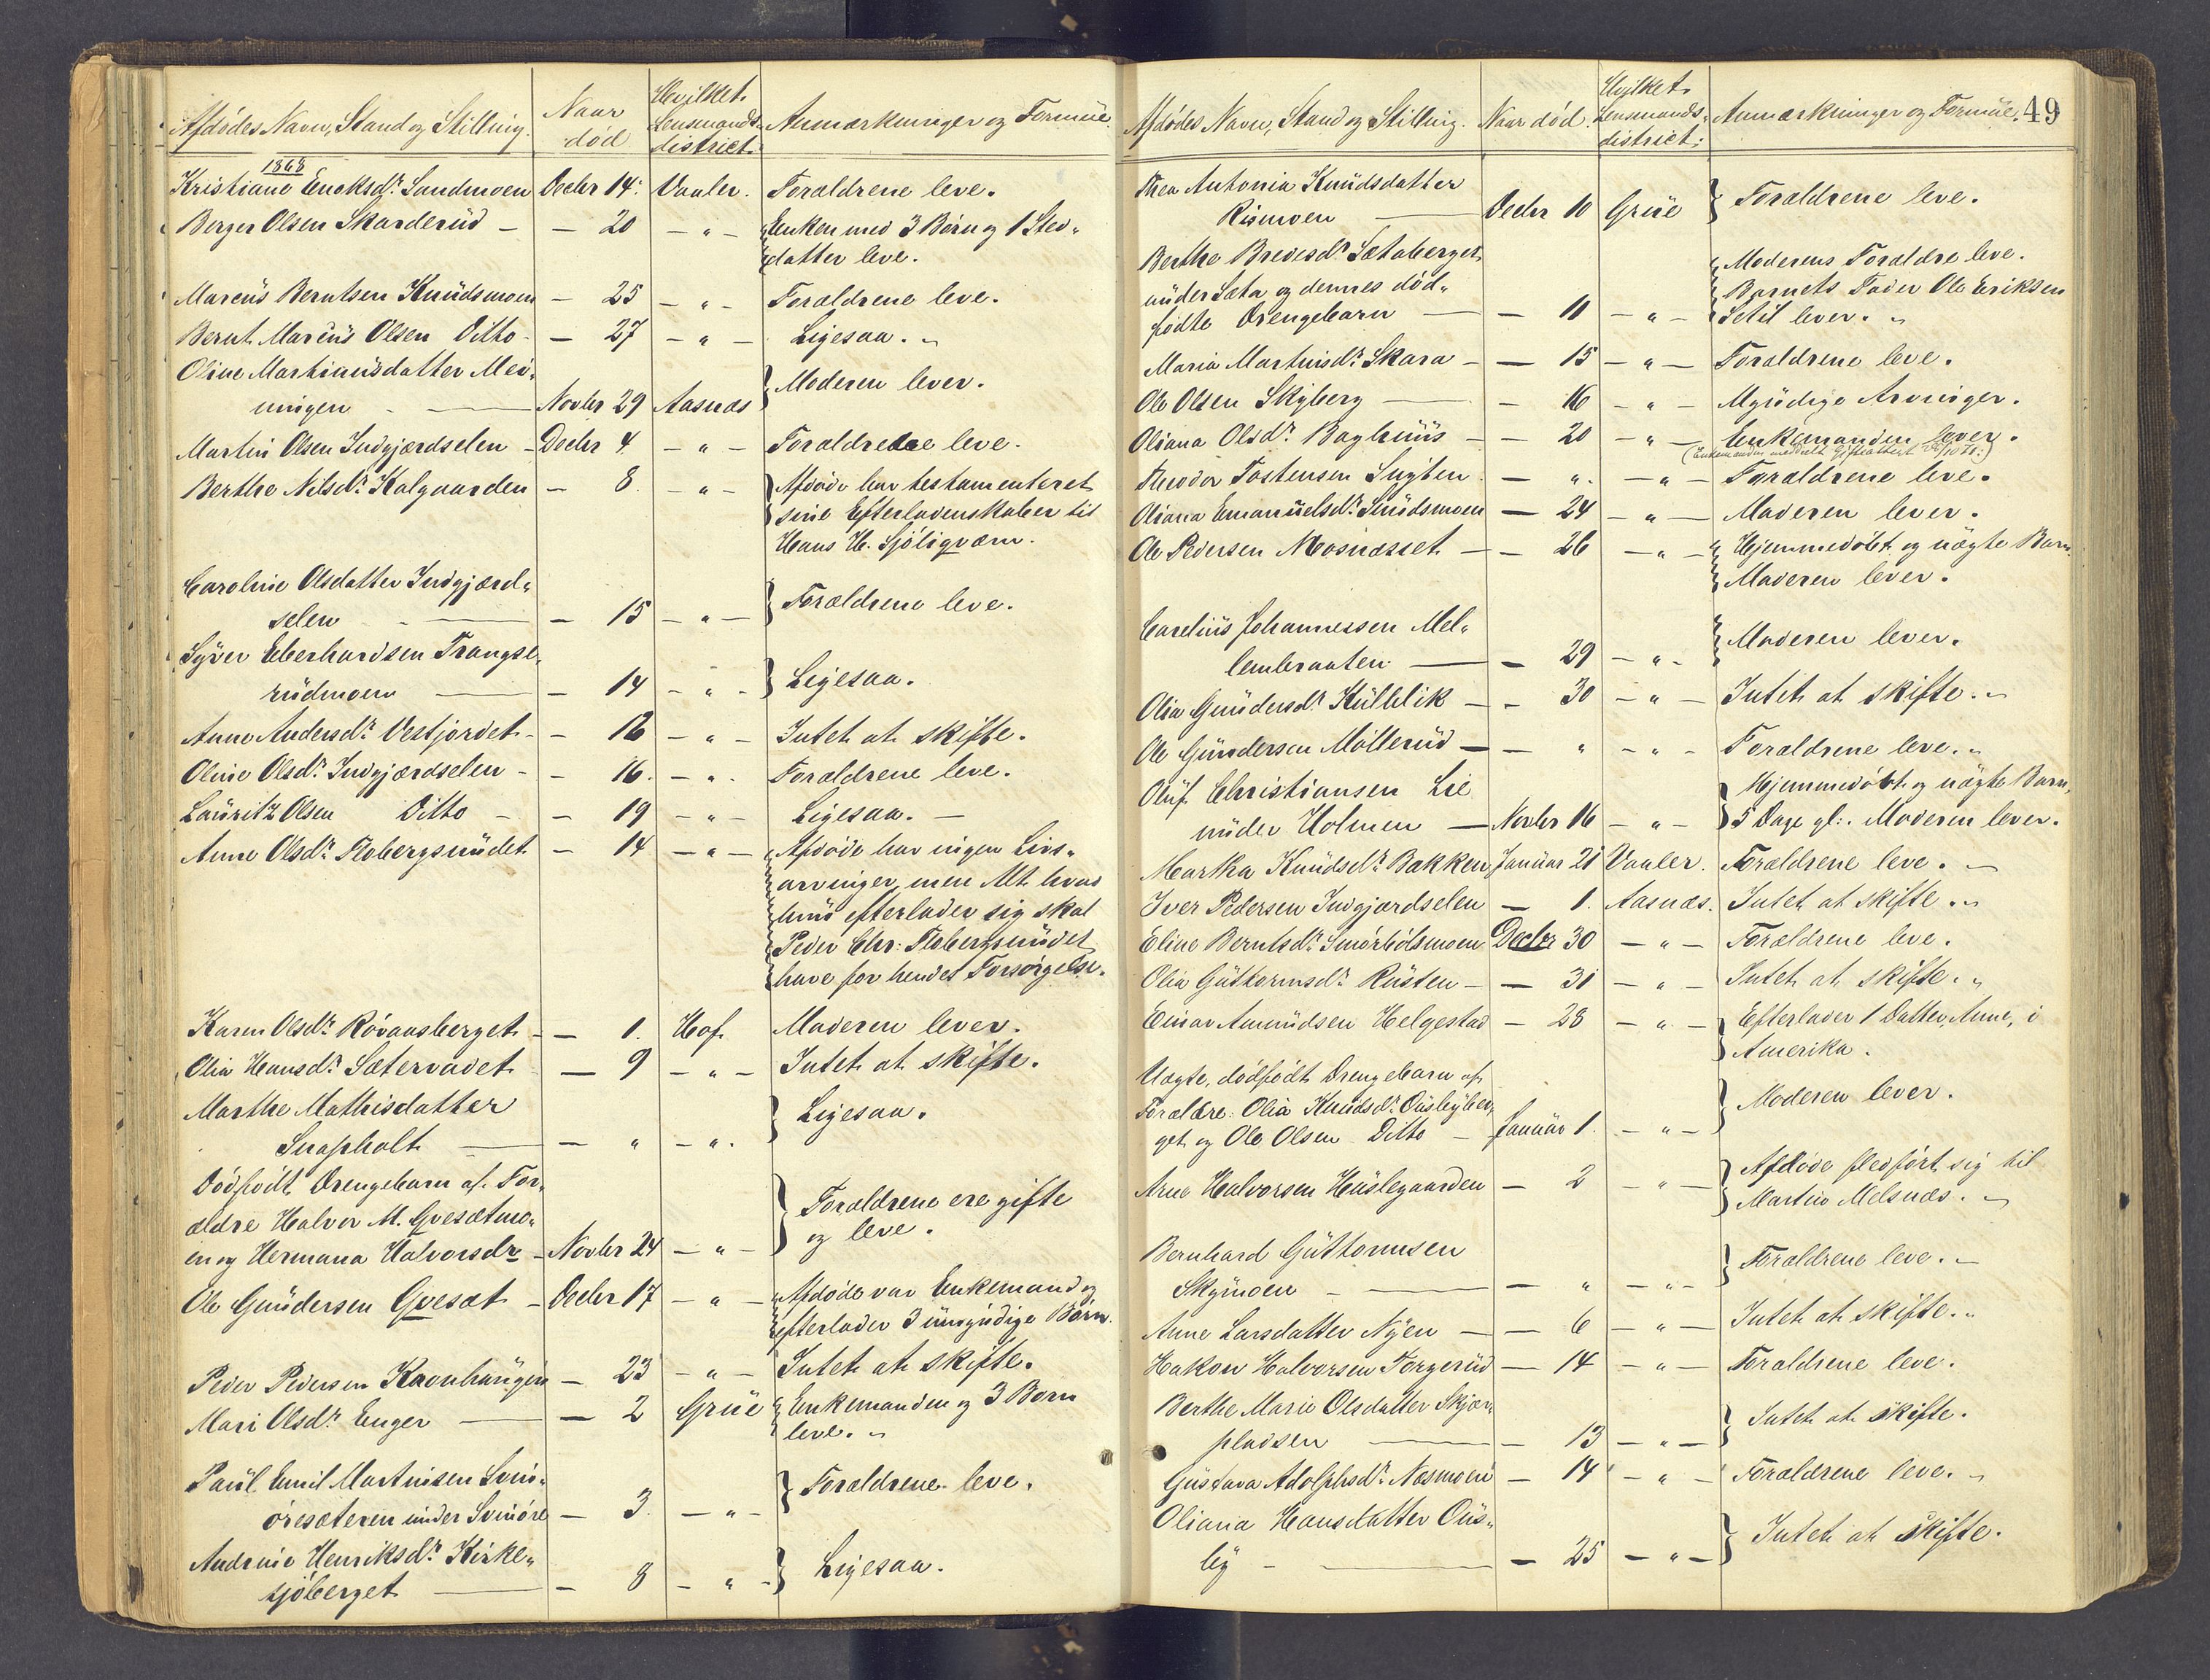 Afdødes Navn, Stand og Stilling. Naar død Hvilket Lensmands-district. Anmærkninger og Formue.
1868
Kristiane Encksdr. Sandmoen Decbr 14. Vaaler. Forældrene leve.
Berger Olsen Skarderud — — 20 — " — Enken med 3 Børn og 1 Sted-
datter leve.
Marcus Berntsen Knudsmoen — 25 — " — Forældrene leve.
Bernt Marcus Olsen Ditto — — 27 — " — Ligesaa. "
Oline Martiniusdatter Mei-
ningen — Novbr 29 Aasnæs Moderen lever.
Martin Olsen Indgjærdselen — Decbr 4 — " — Forældrene leve.
Berthe Nilsdr. Kalgaarden — 8. — " — Afdøde har testamenteret
sine Efterladenskaber til
Hans H. Sjöliqværn.
Caroline Olsdatter Indgjærd-
selen — — 15 — " — Forældrene leve.
Syver Eberhardsen Trangse-
rudmoen — — 14 — " — Ligesaa.
Anne Andersdr. Vestjordet — — 12 — " — Intet at skifte.
Oline Olsdr. Indgjærdselen — — 16. — " — Forældrene leve.
Lauritz Olsen Ditto — — 19 — " — Ligesaa. —
Anne Olsdr. Flobergsrudet — 14 — " — Afdøde har ingen Livs-
arvinger, men Alt hvad
hun efterlader sig skal
Peder Chr. Flobergsrudet
have for hendes Forsørgelse.
Karen Olsdr. Rövaasberget — — 1. Hof. Moderen lever.
Olia Hansdr. Sætervadet — 9 — " — Intet at skifte.
Marthe Mathisdatter
Snapholt — — " — " — Ligesaa.
Dödfödt Drengebarn af For-
ældre Halvor M. Gvesætmo-
en og Hermana Halvorsdr — Novbr 24 — " — Forældrene ere gifte
og leve.
Ole Gundersen Gvesæt — Decbr 17 — " — Afdøde var Enkemand og
efterlader 3 umyndige Börn.
Peder Pedersen Kronhaugen — 23 — " — Intet at skifte.
Mari Olsdr. Enger — — 2 Grue Enkemanden og 3 Børn
leve. "
Paul Emil Martinsen Svin-
öresæteren under Svinöre — 3. — " — Forældrene leve.
Andrine Henriksdr. Kirke-
sjöberget — — 8 — " — Ligesaa.
Afdødes Navn, Stand og Stilling. Naar død. Hvilket Lensmands-district: Anmærkninger og Formue. 49
Thea Antonia Knudsdatter
Rismoen — Decbr 10 Grue Forældrene leve.
Berthe Bredesdr. Sætaberget
under Sæta og dennes död-
födte Drengebarn — — 11 — " — Moderens Forældre leve.
Barnets Fader Ole Eriksen
Setil lever. "
Maria Martinsdr. Skara — — 15 — " — Forældrene leve.
Ole Olsen Skyberg — — 16 — " — Myndige Arvinger.
Oliana Olsdr. Baghuus — — 20 — " — Enkemanden lever.
(Enkemanden meddelt Gifteattest
Theodor Tostensen Sugten — " — " — Forældrene leve.
Oliana Emanuelsdr. Snudsmoen — 24 — " — Moderen lever.
Ole Pedersen Mosnæsset — — 26 — " — Hjemmedöbt og uægte Barn.
Moderen lever.
Carelius Johannessen Mel-
lembraaten — — 29 — " — Moderen lever.
Olia Gundersdr. Kulblik — — 30 — " — Intet at skifte. "
Ole Gundersen Möllerud — — " — " — Forældrene leve. "
Oluf Christiansen Lie
under Holmen — Novbr 16 — " — Hjemmedöbt og uægte Barn,
5 Dage gl. Moderen lever.
Martha Knudsdr. Bakken Januar 21 Vaaler. Forældrene leve. —
Iver Pedersen Indgjærdselen — 1. Aasnæs. Intet at skifte. "
Eline Berntsdr. Smörhólsmoen Decbr 30 — " — Forældrene leve.
Olia Guttormsdr. Rusten — — 31 — " — Intet at skifte. "
Einar Amundsen Helgestad — 28 — " — Efterlader 1 Datter, Anne, i
Amerika.
Uægte, dödfödt Drengebarn af
Forældre: Olia Knudsdr. Ousbyber-
get og Ole Olsen Ditto — Januar 1. — " — Moderen lever.
Arne Halvorsen Huslegaarden — 2 — " — Afdøde fledført sig til
Martin Melsnæs. "
Bernhard Guttormsen
Skymoen — — " — " — Forældrene leve. —
Anne Larsdatter Nyen — — 6 — " — Intet at skifte. "
Hakon Halvorsen Torgerud — 14 — " — Forældrene leve.
Berthe Marie Olsdatter Skjær-
pladsen — — 13 — " — Intet at skifte.
Gustava Adolphsdr. Næsmoen — 14 — " — Forældrene leve. "
Oliana Hansdatter Ous-
by — — 25 — " — Intet at skifte.